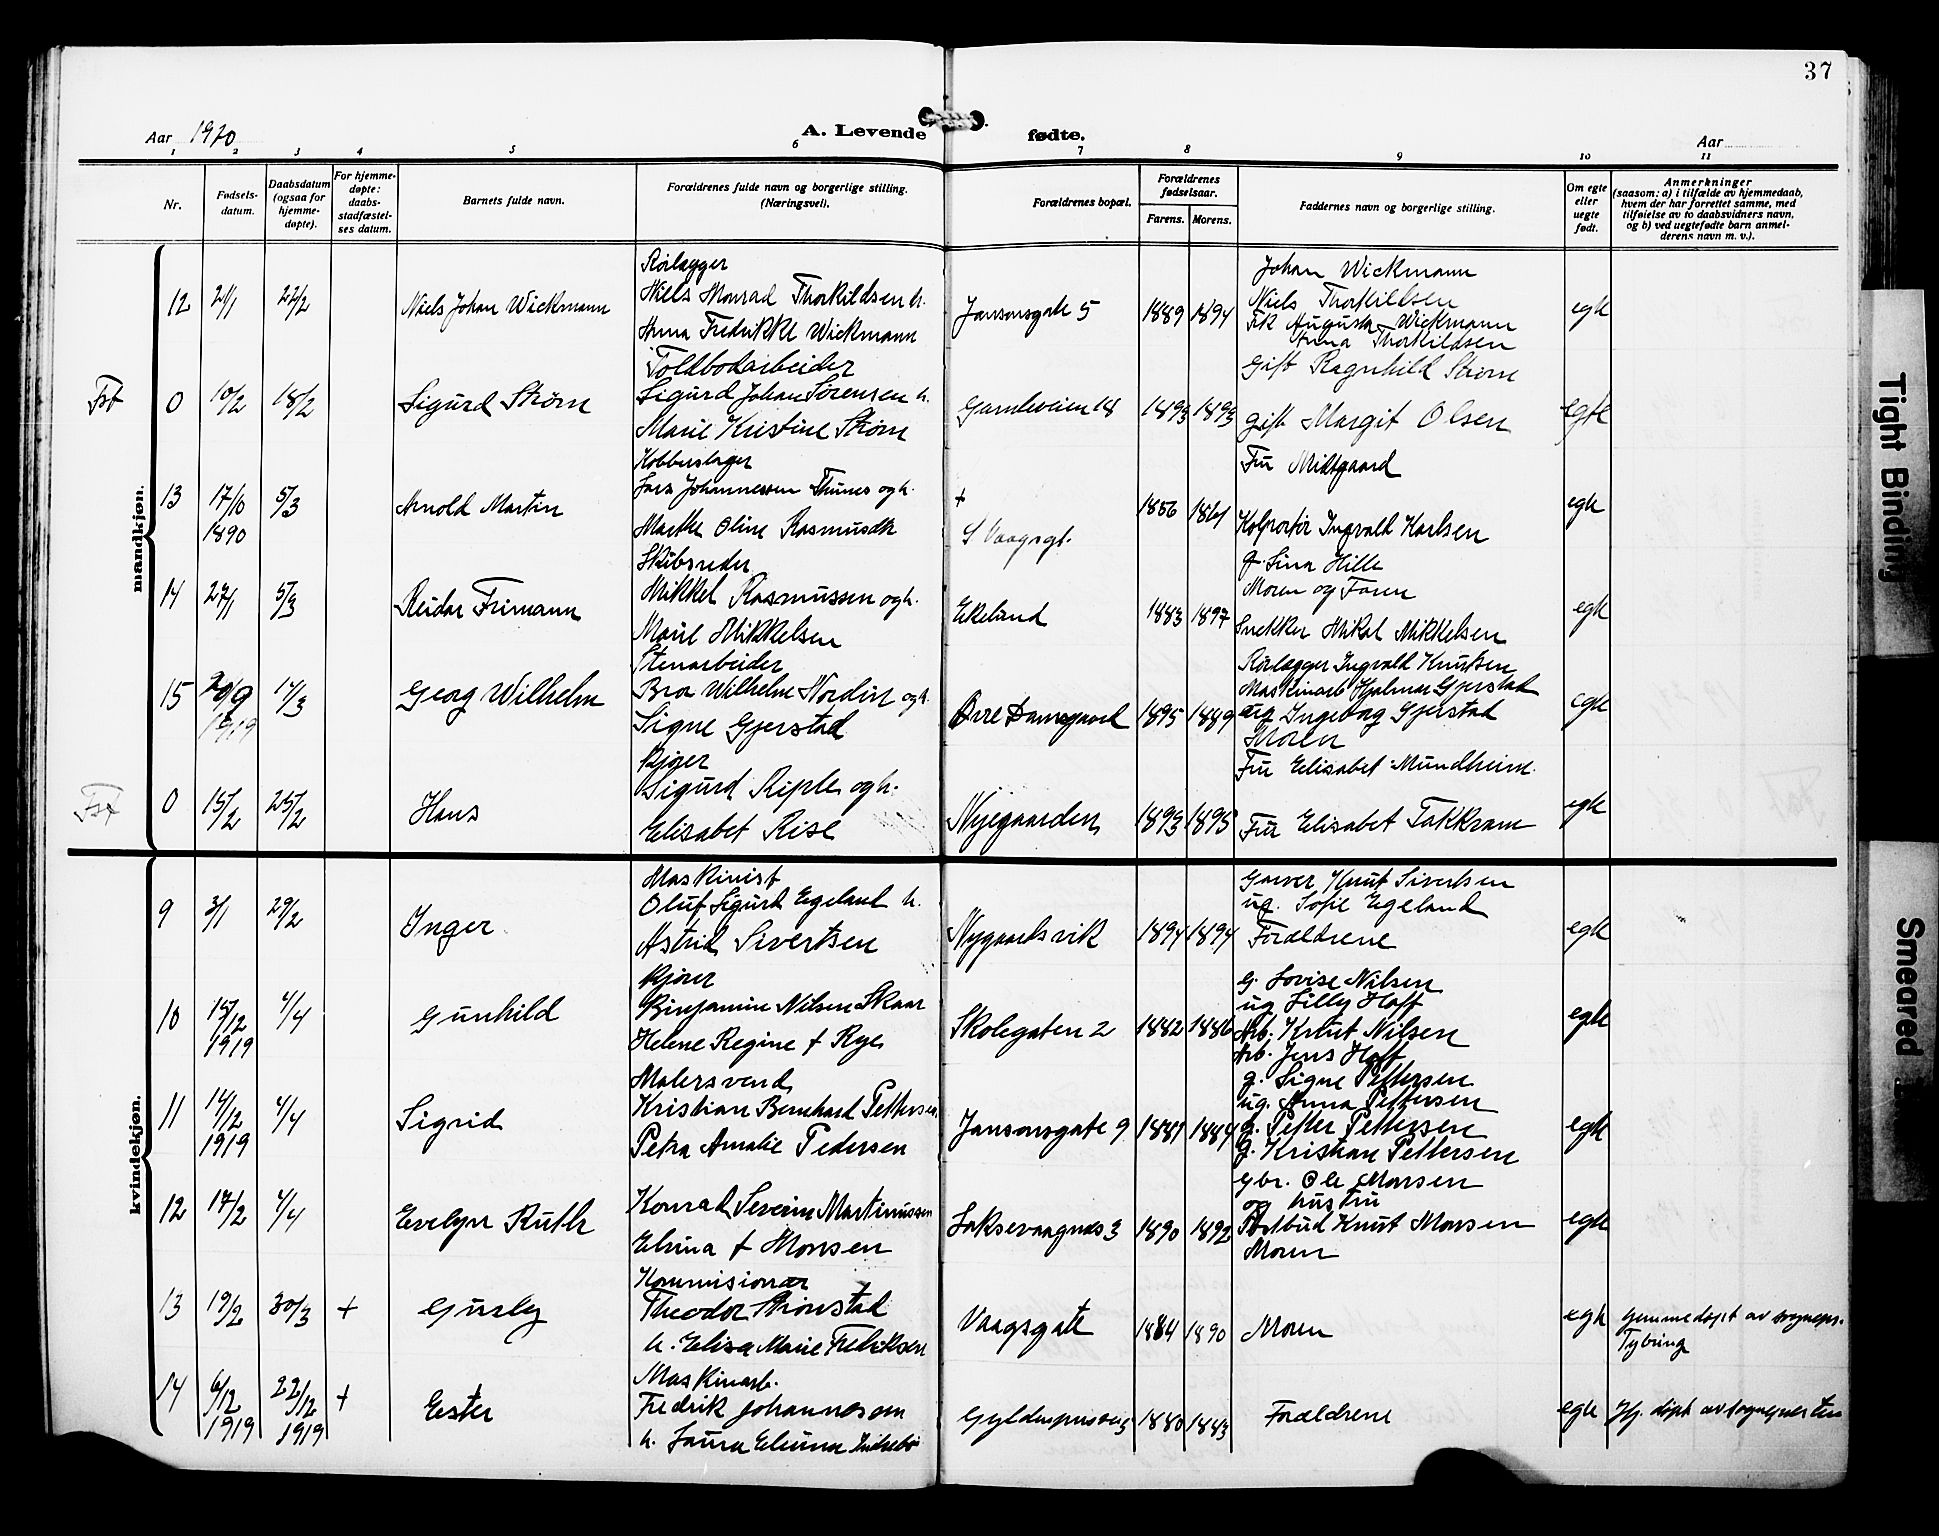 37
Aar 1920
A. Levende fødte.
Aar
1 2 3 4 5 6 7 8 9 10 11
Nr.
Fødsels-
datum.
Daabsdatum
(ogsaa for
hjemme-
døpte).
For hjemme-
døpte:
daabs-
stadfæstel-
ses datum.
Barnets fulde navn.
Forældrenes fulde navn og borgerlige stilling.
(Næringsvei).
Forældrenes bopæl.
Forældrenes
fødselsaar.
Farens. Morens.
Faddernes navn og borgerlige stilling.
Om egte
eller
uegte
født.
Anmerkninger
(saasom: a) i tilfælde av hjemmedaab,
hvem der har forrettet samme, med
tilføielse av to daabsvidners navn,
og b) ved uegtefødte barn anmel-
derens navn m. v.).
mandkjøn.
12 2/1 22/2 Niels Johan Wickmann
Rørlægger
Niels Monrad Thorkildsen h.
Anna Fredrikke Wickmann
Jansonsgate 5 1889 1894
Johan Wickmann
Niels Thorkildsen
Frk Augusta Wickmann
Anna Thorkildsen
egte
Fst 0 10/2 18/2 Sigurd Strøm
Toldbodarbeider
Sigurd Johan Sørensen h.
Marie Kristine Strøm
Gamleveien 18 1893 1893
Gift Ragnhild Strøm
gift Margit Olsen
egte
13 17/10 1890 5/3 Arnold Martin
Kobberslager
Lars Johannessen Thunes og h.
Marthe Oline Rasmusdtr
+
S Vaagsgt. 1856 1861
Fru Midtgaard
Kolportør Ingvald Karlsen
egte
14 27/1 5/3 Reidar Frimann
Skibsreder
Mikkel Rasmussen og h.
Marie Mikkelsen
Ekeland 1883 1897
g. Lina Hille
Moren og Faren
Snekker Mikal Mikkelsen
egte
15 20/9 1919 14/3 Georg Wilhelm
Stenarbeider
Bror Wilhelm Nordin og h.
Signe Gjerstad
Øvre Damsgaard 1895 1889
Rørlægger Ingvald Knutsen
Maskinarb Hjalmar Gjerstad
ug Ingeborg Gjerstad
Moren
egte
Fst 0 15/2 25/2 Hans
Kjører
Sigurd Riple og h.
Elisabet Rise
Nyegaarden 1893 1895
Fru Elisabet Mundheim
Fru Elisabet Takkvam
egte
kvindekjøn.
9 3/1 29/2 Inger
Maskinist
Oluf Sigurd Egeland h.
Astrid Sivertsen
Nygaardsvik 1894 1894
Garver Knut Sivertsen
ug. Sofie Egeland
Forældrene
egte
10 15/12 1919 4/4 Gunhild
Kjører
Benjamin Nilsen Skaar
Helene Regine f Rye
Skolegaten 2 1882 1886
g. Lovise Nilsen
ug Lilly Hoff
Arb. Knut Nilsen
Arb. Jens Hoff
egte
11 14/12 1919 4/4 Sigrid
Malersvend
Kristian Bernhard Pettersen
Petra Amalie Pedersen
Jansonsgate 9 1889 1884
g. Signe Pettersen
ug. Anna Pettersen
g. Petter Pettersen
g. Kristian Pettersen
egte
12 17/2 4/4 Evelyn Ruth
Konrad Severin Martinussen
Elvina f Monsen
Laksevaagnes 3 1890 1892
gbr. Ole Monsen
og hustru
Postbud Knut Monsen
Moren
egte
13 19/2 30/3 +
Kommisionær
Theodor Strønstad
h. Elisa Marie Fredriksen
Vaagsgate 1884 1890
Moren
egte
hjemmedøpt av sogneps.
Tybring
14 6/12 1919 22/12 1919 + Ester
Maskinarb.
Fredrik Johannesen
h. Laura Elvina
1880 1883
Forældrene
egte
Hj. døpt av sognepresten
Tight Binding
Smeared